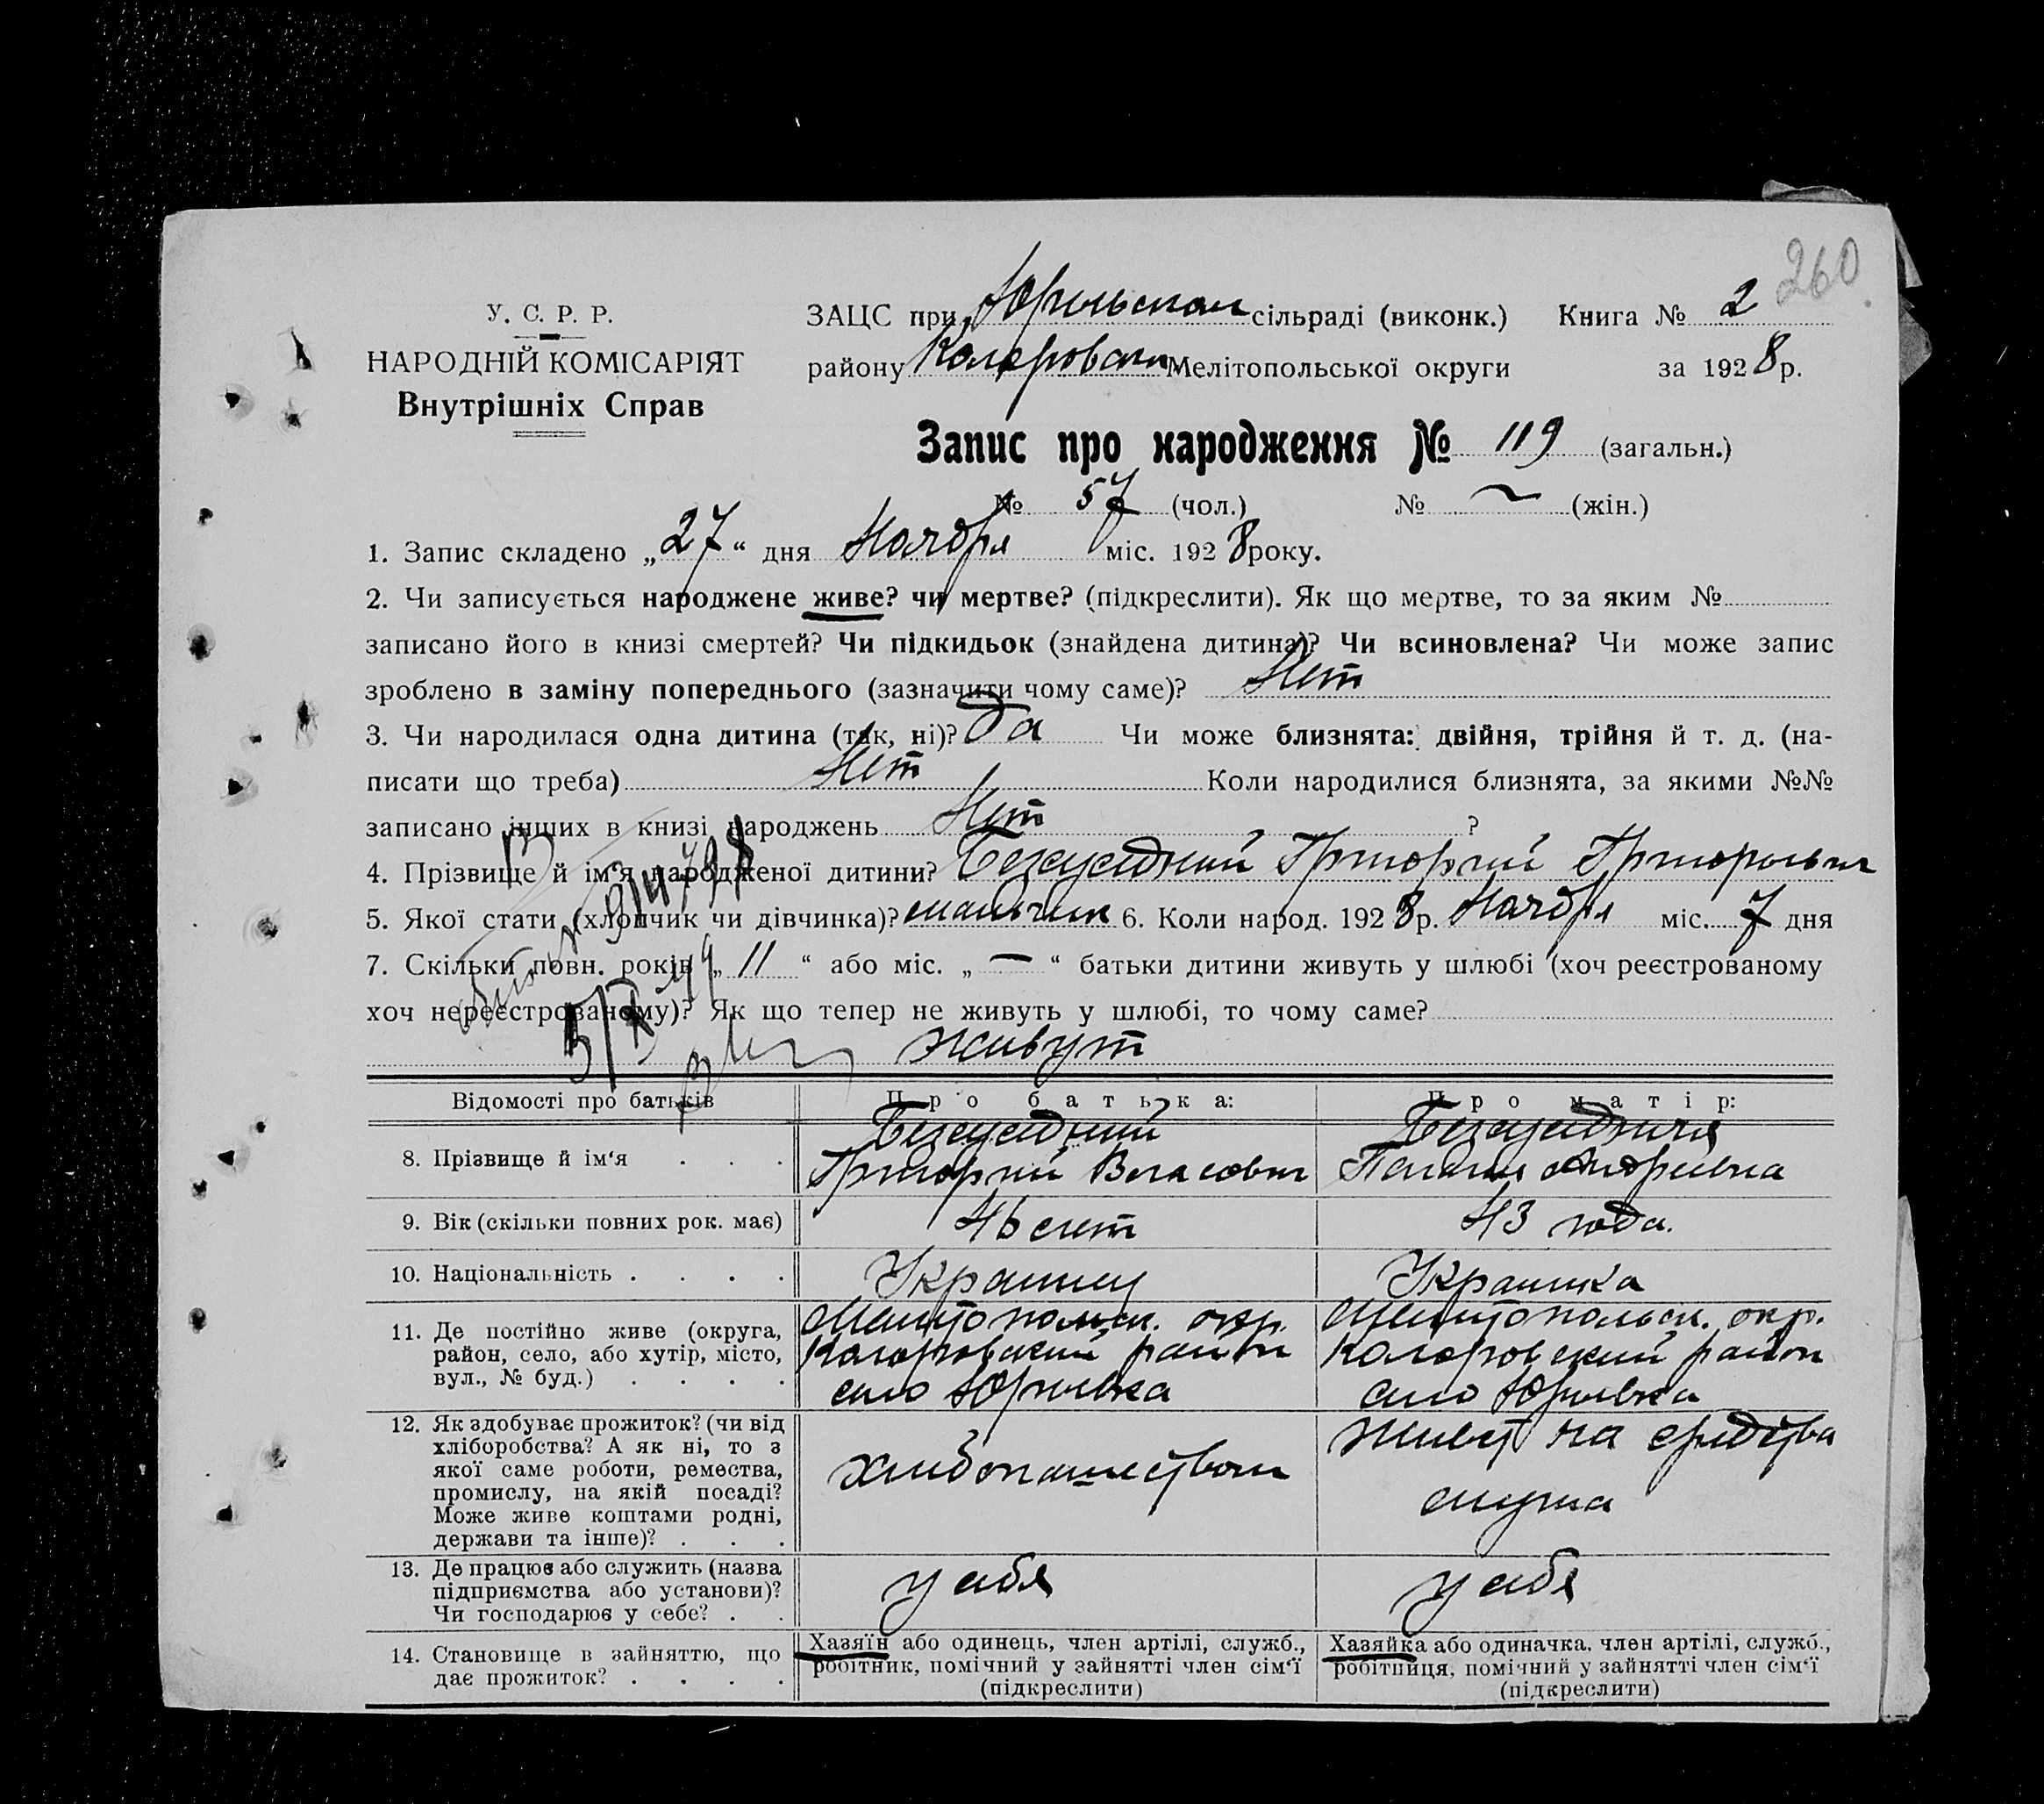 260
У. С. Р. Р.
НАРОДНІЙ КОМІСАРІЯТ
Внутрішніх Справ
ЗАЦС при Юрьевском сільраді (виконк.) Книга № 2
району Коларовском Мелітопольської округи за 1928 р.
Запис про народження № 119 (загальн.)
№ 57 (чол.) № ~ (жін.)
1. Запис складено „27“ дня Ноября міс. 1928 року.
2. Чи записується народжене живе? чи мертве? (підкреслити). Як що мертве, то за яким №
записано його в книзі смертей? Чи підкидьок (знайдена дитина)? Чи всиновлена? Чи може запис
зроблено в заміну попереднього (зазначити чому саме)? Нет
3. Чи народилася одна дитина (так, ні)? Да Чи може близнята: двійня, трійня й т. д. (на-
писати що треба) Нет Коли народилися близнята, за якими №№
записано інших в книзі народжень Нет ?
4. Прізвище й ім‘я народженої дитини? Григорий Григорьевич
5. Якої стати (хлопчик чи дівчинка)? мальчик 6. Коли народ. 1928 р. Ноября міс. 7 дня
7. Скільки повн. років „11“ або міс. „—“ батьки дитини живуть у шлюбі (хоч реєстрованому
хоч нереєстрованому)? Як що тепер не живуть у шлюбі, то чому саме?
живут
Відомості про батьків Про батька: Про матір:
8. Прізвище й ім‘я . . .
Григорий Власович
Андреевна
9. Вік (скільки повних рок. має) 46 лет 43 года.
10. Національність . . . . Украинец Украинка
11. Де постійно живе (округа,
район, село, або хутір, місто,
вул., № буд.) . . . .
Мелитопольск. окр.
Коларовский район
село Юрьевка
Мелитопольск. окр.
Коларовский район
село Юрьевка
12. Як здобуває прожиток? (чи від
хліборобства? А як ні, то з
якої саме роботи, ремества,
промислу, на якій посаді?
Може живе коштами родні,
держави та інше)? . . .
хлебопашеством
живет на средства
мужа
13. Де працює або служить (назва
підприємства або установи)?
Чи господарює у себе? . .
у себя
у себя
14. Становище в зайняттю, що
дає прожиток? . . . .
Хазяїн або одинець, член артілі, служб.,
робітник, помічний у зайнятті член сім‘ї
(підкреслити)
Хазяйка або одиначка, член артілі, служб.,
робітниця, помічний у зайнятті член сім‘ї
(підкреслити)